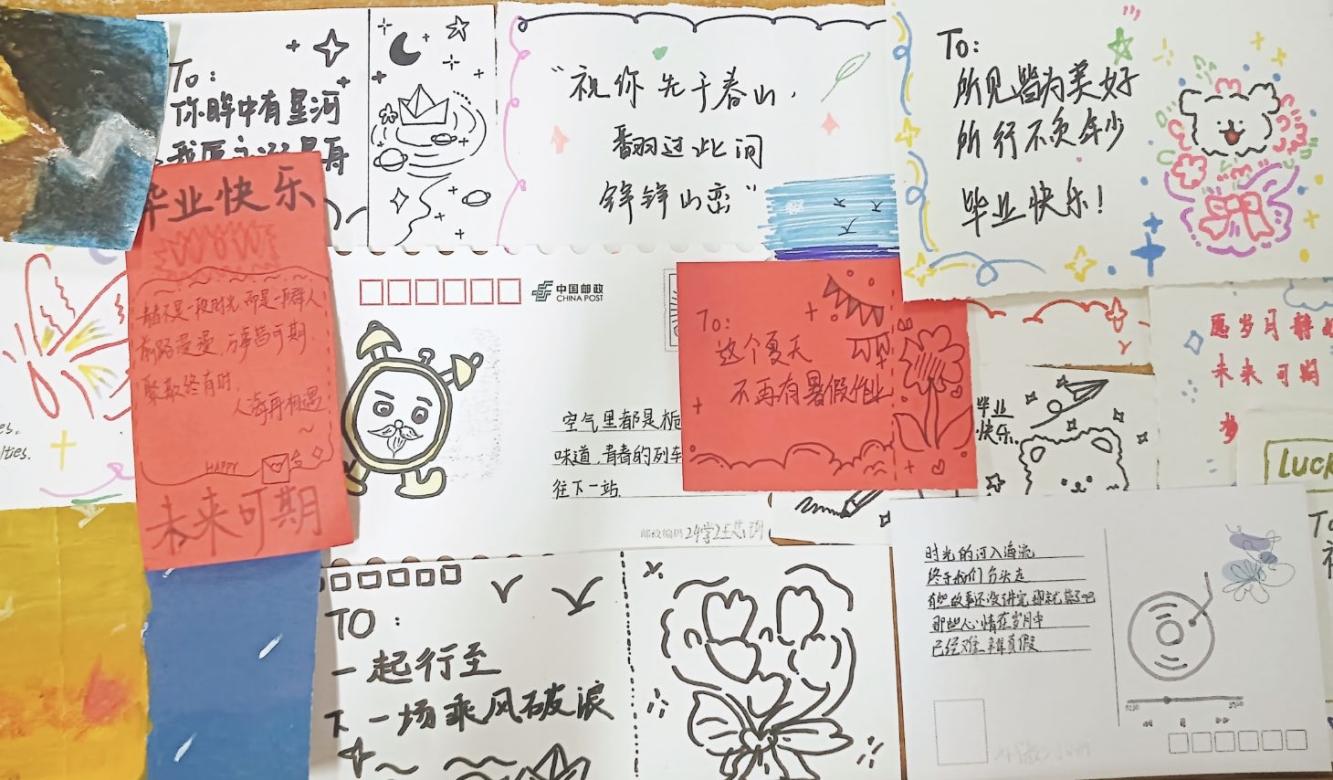 To:
你眸中有星河
毕业快乐
青春不是一段时光,而是一群人
前路漫漫,万事皆可期
聚散终有时,
人海再相遇
HAPPY
未来可期
"祝你先于春山,
翻过此间
锌锌山峦"
To:
所见皆为美好
所行不负年少
毕业快乐!
中国邮政
CHINA POST
空气里都是栀
味道,青春的列车
往下一站
邮政编码
To:
这个夏天
不再有暑假作业
毕业
快乐
愿岁月静
未来可期
岁
LUCK
TO:
一起行至
下一场乘风破浪
时光的河入海流
终于我们分头走
有些故事还没讲完那就算了吧
那些心情在岁月中
已经难辨真假
To